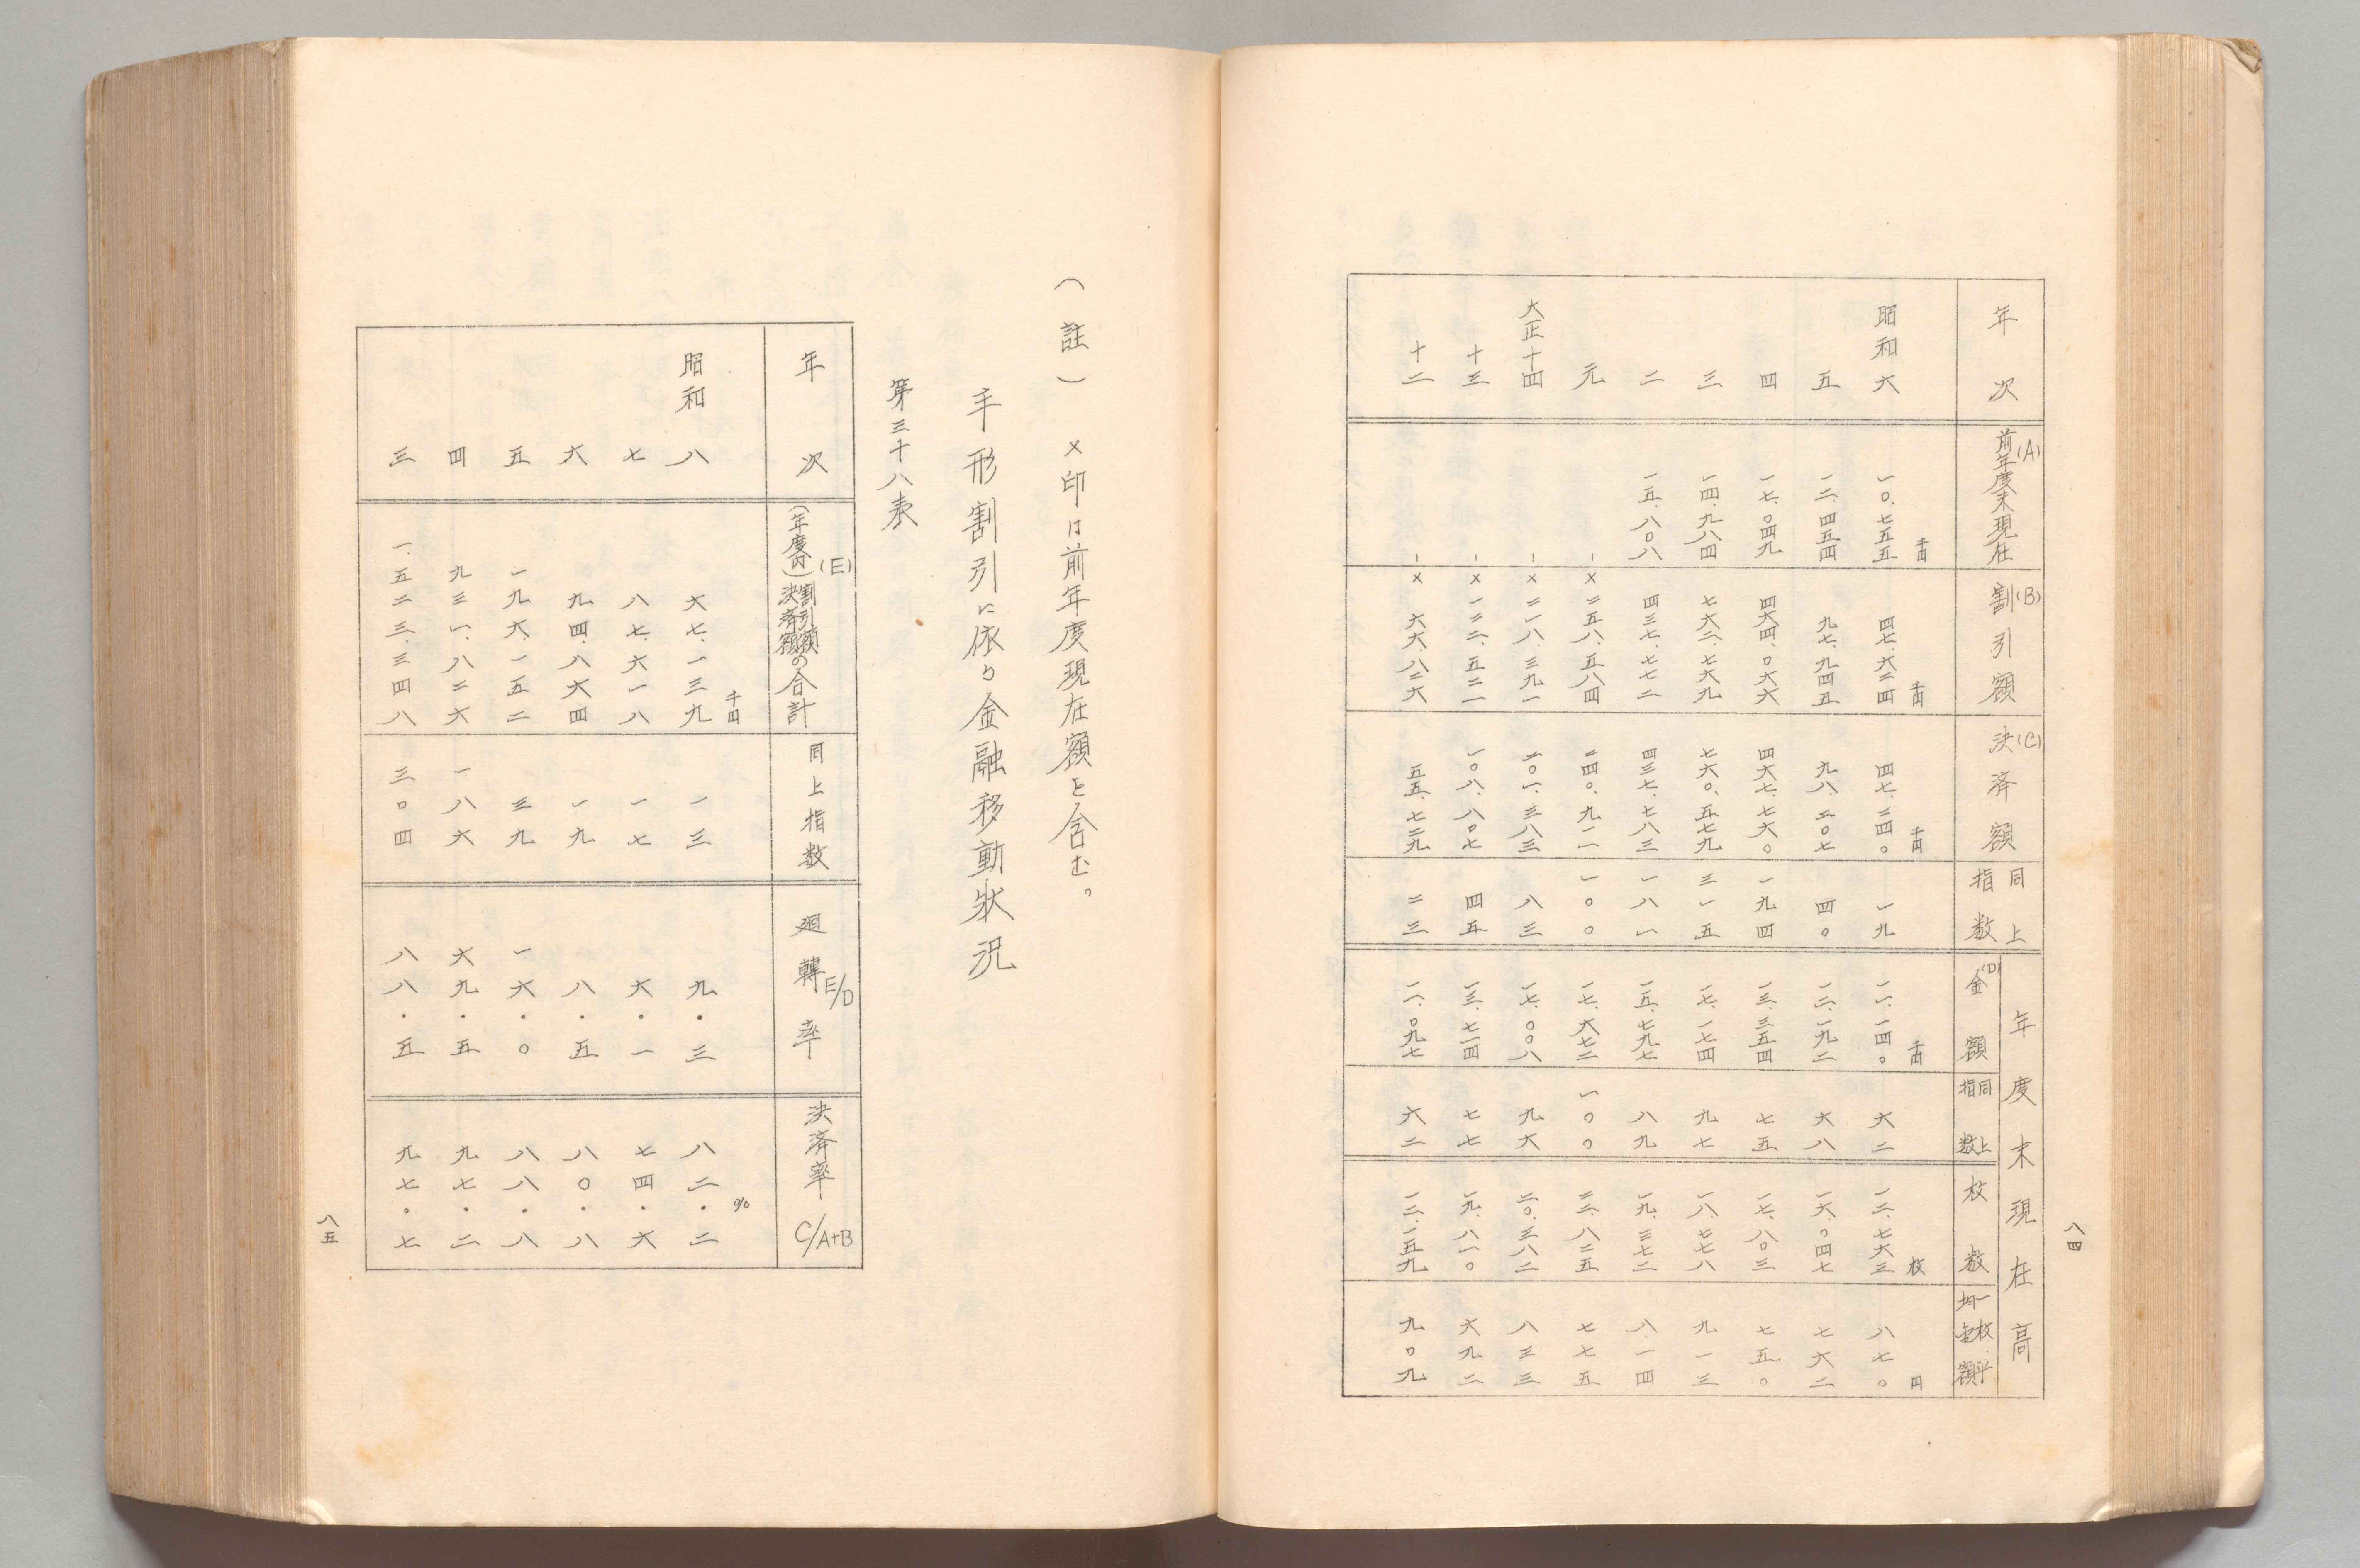 八四
年次 (A)前年度末現在 (B)割引額 (C)決済額 同上指数 年度末現在高 (D)金額 同上指数 枚数 一枚平均金額
千円 千円 千円 千円 枚 円
昭和六 一〇.七五五 四七.六二四 四七.二四〇 一九 一一.一四〇 六二 一二.七六三 八七〇
五 一二.四五四 九七.九四五 九八.二〇七 四〇 一二.一九二 六八 一六.〇四七 七六二
四 一七.〇四九 四六四.〇六六 四六七.七六〇 一九四 一三.三五四 七五 一七.八〇三 七五〇
三 一四.九八四 七六二.七六九 七六〇.五七九 三一五 一七.一七四 九七 一八.七七八 九一三
二 一五.八〇八 四三七.七七二 四三七.七八三 一八一 一五.七九七 八九 一九.三七二 八一四
元 － ×二五八.五八四 二四〇.九一一 一〇〇 一七.六七二 一〇〇 二二.八二五 七七五
大正十四 － ×二一八.三九一 二〇一.三八三 八三 一七.〇〇八 九六 二〇.三八二 八三三
十三 － ×一二二.五二一 一〇八.八〇七 四五 一三.七一四 七七 一九.八一〇 六九二
十二 － ×六六.八二六 五五.七二九 二三 一一.〇九七 六二 一二.一五九 九〇九
（註） ×印は前年度現在額を含む。
手形割引に依る金融移動状況
第三十八表
年次 (E)(年度内)割引額決済額の合計 同上指数 廻轉率E/D 決済率C/A+B
千円 %
昭和八 六七.一三九 一三 九・三 八二・二
七 八七.六一八 一七 六・一 七四・六
六 九四.八六四 一九 八・五 八〇・八
五 一九六.一五二 三九 一六・〇 八八・八
四 九三一.八二六 一八六 六九・五 九七・二
三 一.五二三.三四八 三〇四 八八・五 九七・七
八五